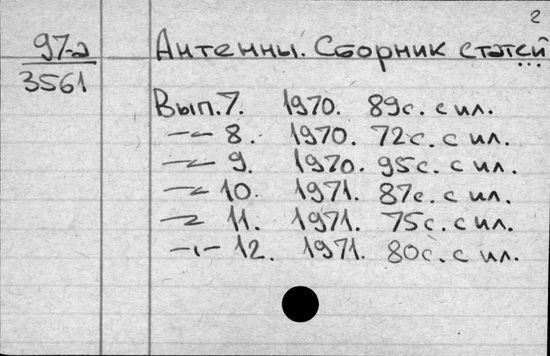 2
97-а
3561
Антенны. Сборник статей
...
Вып. 7. 1970. 89с. с ил.
—"— 8. 1970. 72с. с ил.
—"— 9. 1970. 95с. с ил.
—"— 10. 1971. 87с. с ил.
—"— 11. 1971. 75с. с ил.
—"— 12. 1971. 80с. с ил.